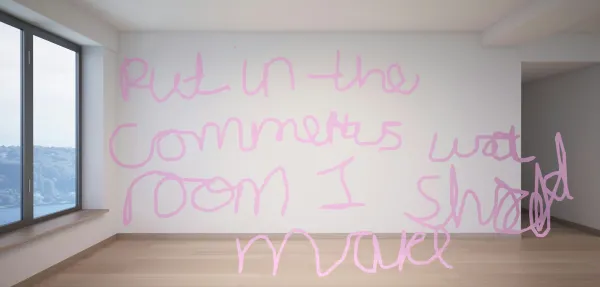 Put in the
comments wat
room I should
make